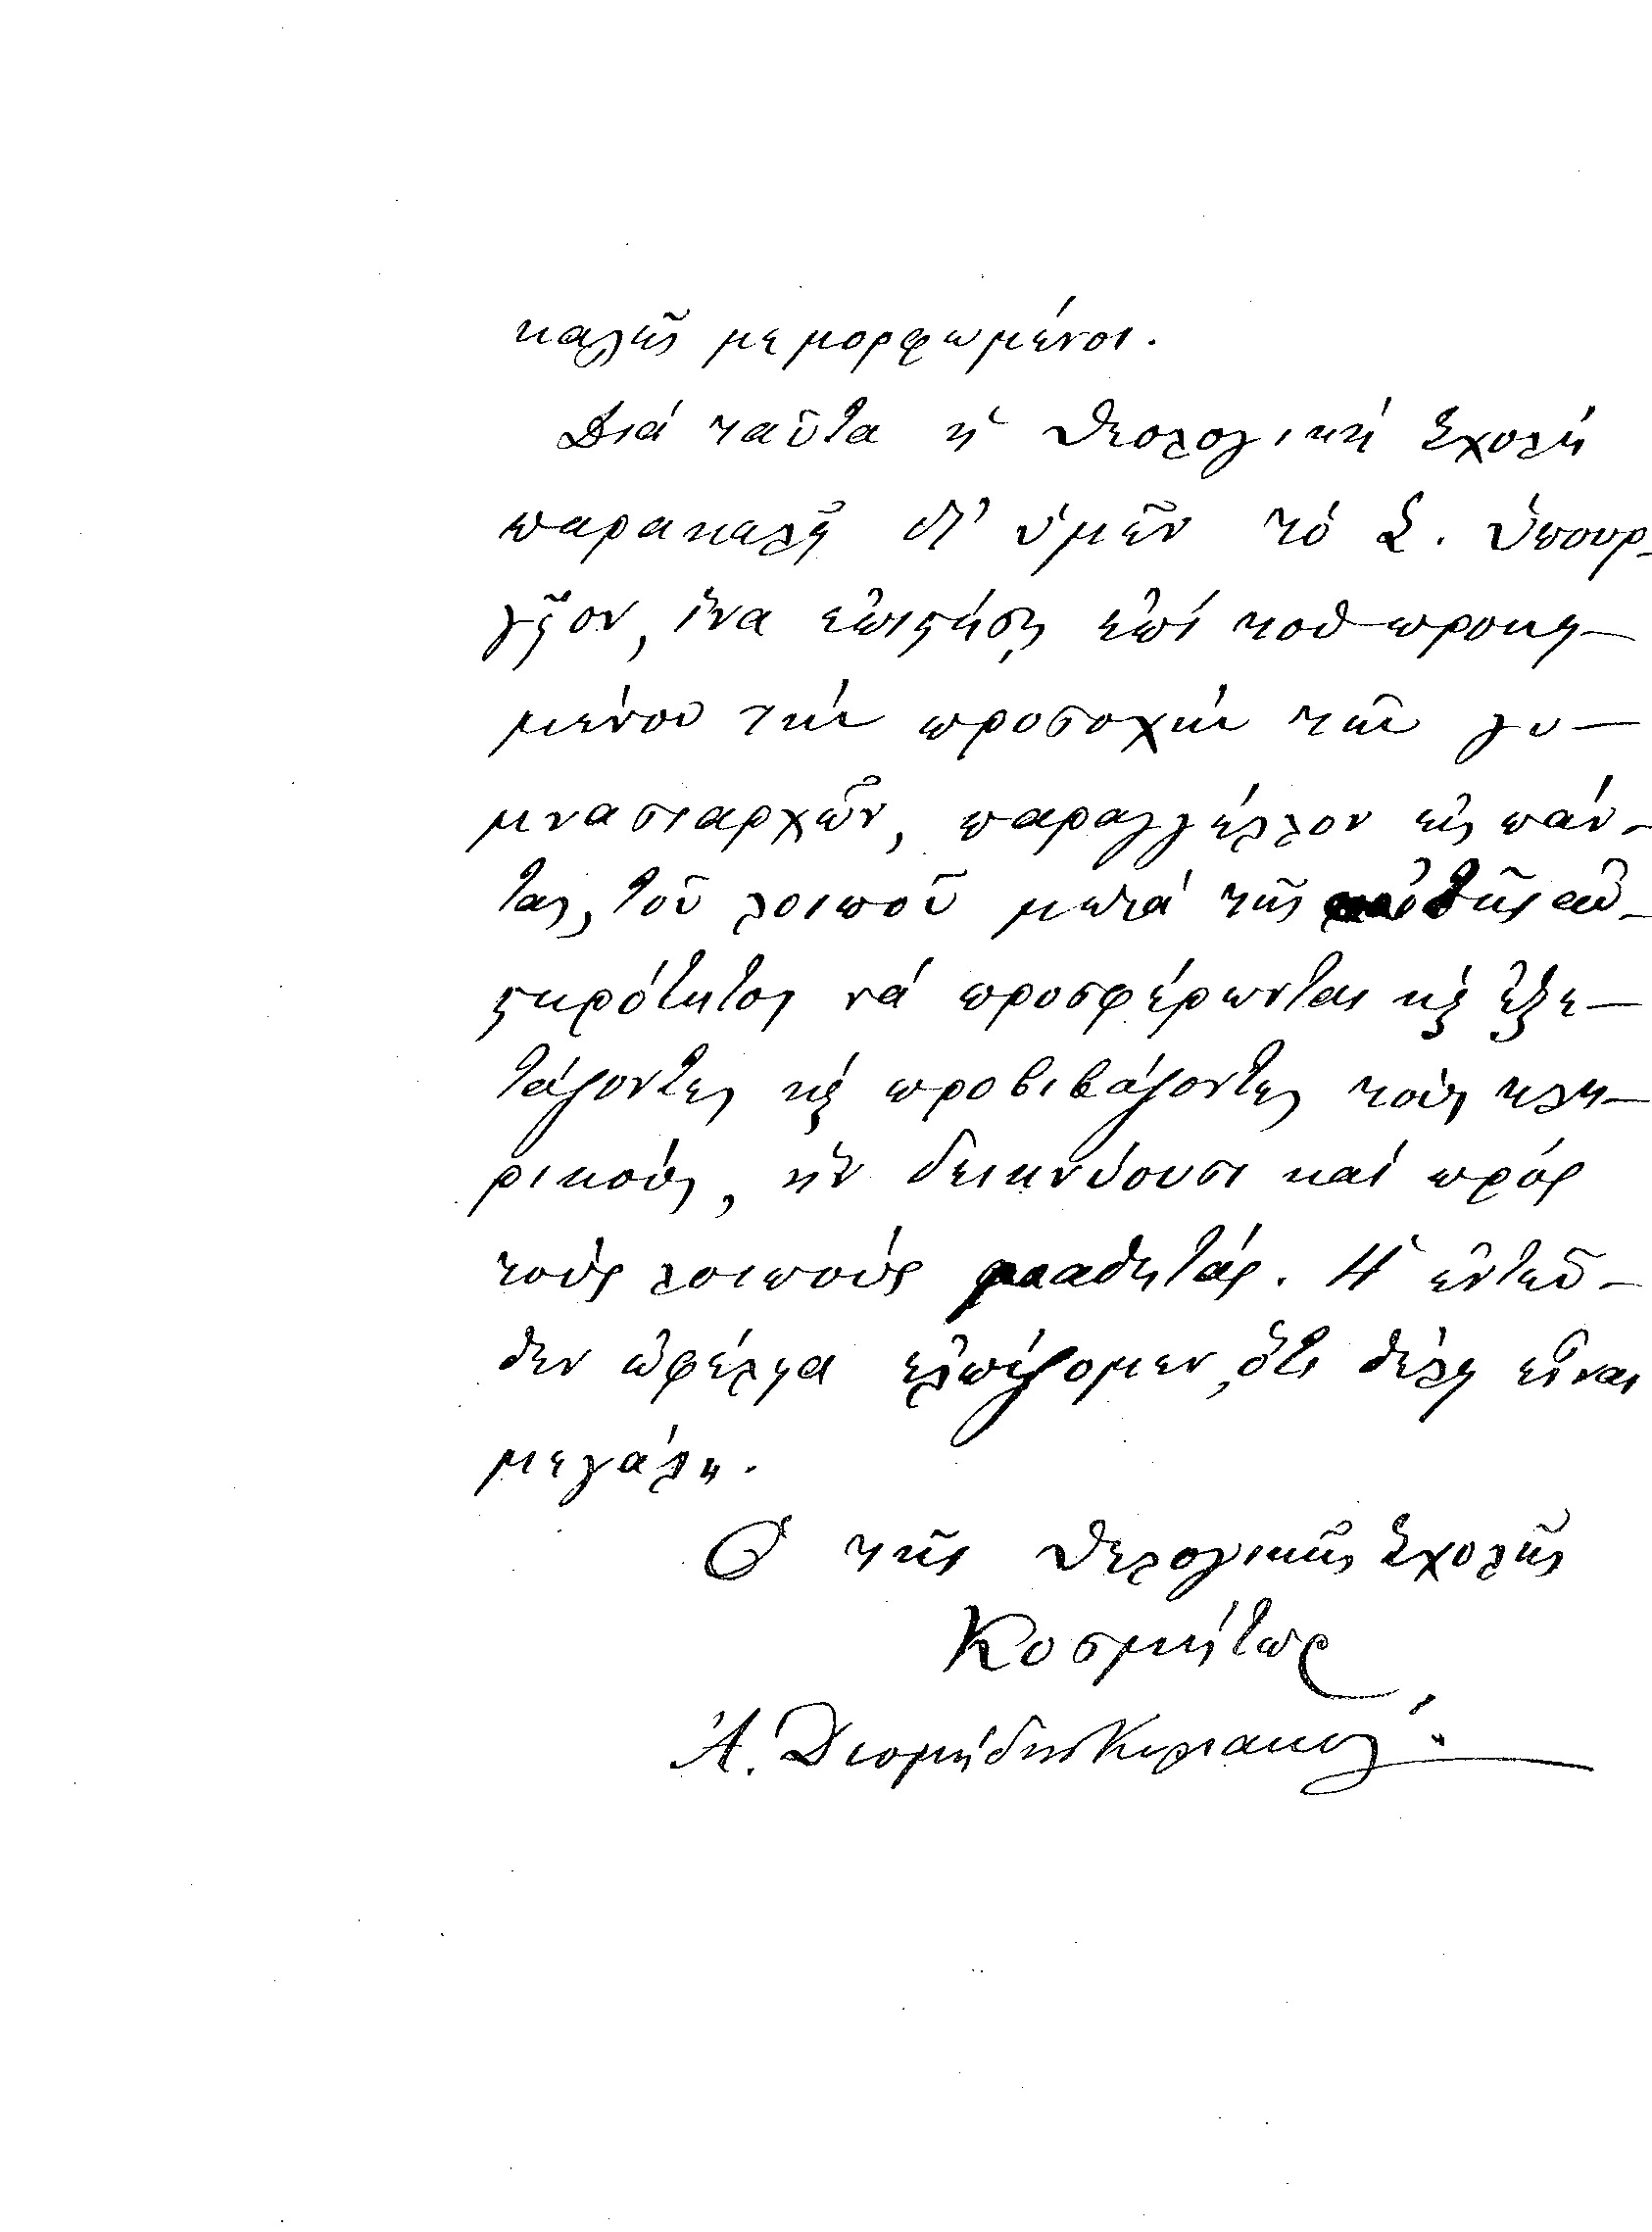 καλῶς μεμορφωμένοι.
Διά ταῦτα ἡ Θεολογική Σχολή
παρακαλεῖ δι' ὑμῶν τό Σ. ὑπουρ-
γεῖον, ἵνα ἐπιστήσῃ ἐπί τοῦ προκει-
μένου τήν προσοχήν τῶν γυ-
μνασιαρχῶν, παραγγέλλον εἰς πάν-
τας, τοῦ λοιποῦ μετά τῆς αὐτῆς αὐ-
στηρότητος νά προσφέρωνται κ̀ ἐξε-
τάζοντες κ̀ προβιβάζοντες τούς κλη-
ρικούς, ἥν δεικνύουσι καί πρός
τούς λοιπούς μαθητάς. Ἡ ἐντεῦ-
θεν ὠφέλεια ἐλπίζομεν, ὅτι θέλει εἶναι
μεγάλη.
Ὁ τῆς Θεολογικῆς Σχολῆς
Κοσμήτωρ
Ἀ. Διομήδης Κυριακός